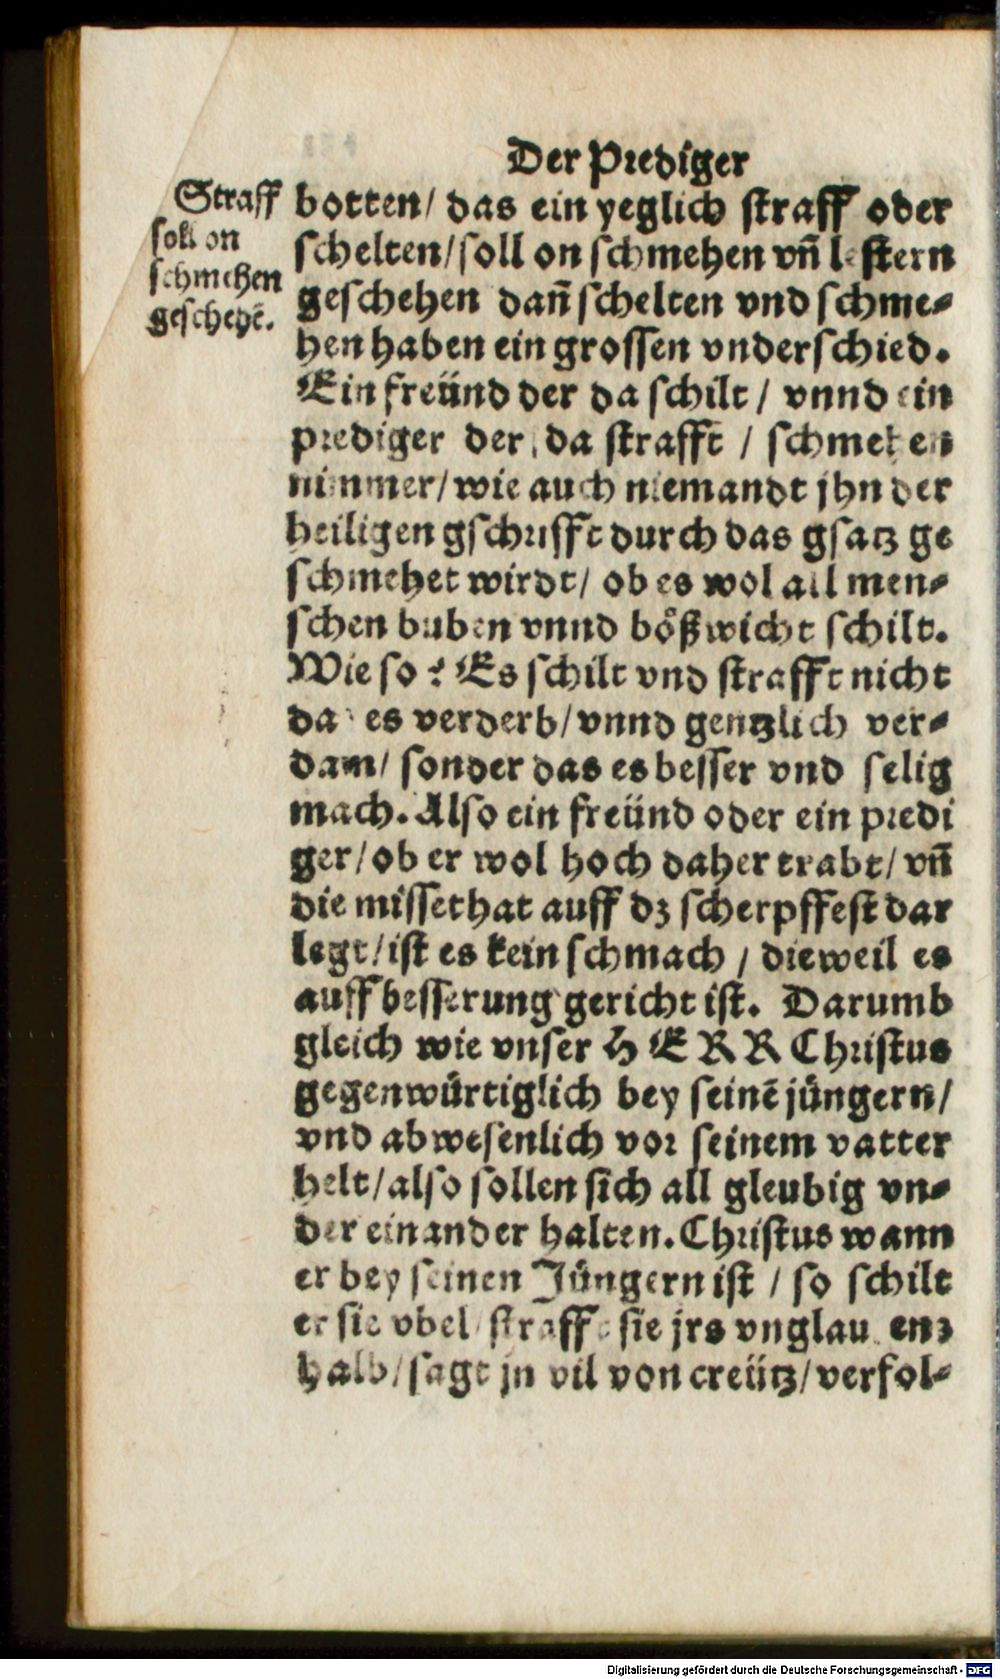 Der Prediger
Straff
soll on
schmehen
geschehẽ.
botten/ das ein yeglich straff oder
schelten/ soll on schmehen vñ lestern
geschehen dañ schelten vnd schme⸗
hen haben ein grossen vnderschied.
Ein freünd der da schilt / vnnd ein
prediger der da strafft / schmehen
nimmer/ wie auch niemandt jhn der
heiligen gschrifft durch das gsatz ge
schmehet wirdt/ ob es wol all men⸗
schen buben vnnd bößwicht schilt.
Wie so? Es schilt vnd strafft nicht
das es verderb/ vnnd gentzlich ver⸗
dam/ sonder das es besser vnd selig
mach. Also ein freünd oder ein predi
ger/ ob er wol hoch daher trabt/ vñ
die missethat auff dz scherpffest dar
legt/ ist es kein schmach / dieweil es
auff besserung gericht ist. Darumb
gleich wie vnser HERR Christus
gegenwürtiglich bey seinẽ jüngern/
vnd abwesenlich vor seinem vatter
helt/ also sollen sich all gleubig vn⸗
der einander halten. Christus wann
er bey seinen Jüngern ist / so schilt
er sie vbel/ straff sie jrs vnglaubenz
halb/ sagt jn vil von creütz/ verfol⸗
Digitalisierung gefördert durch die Deutsche Forschungsgemeinschaft - DFG